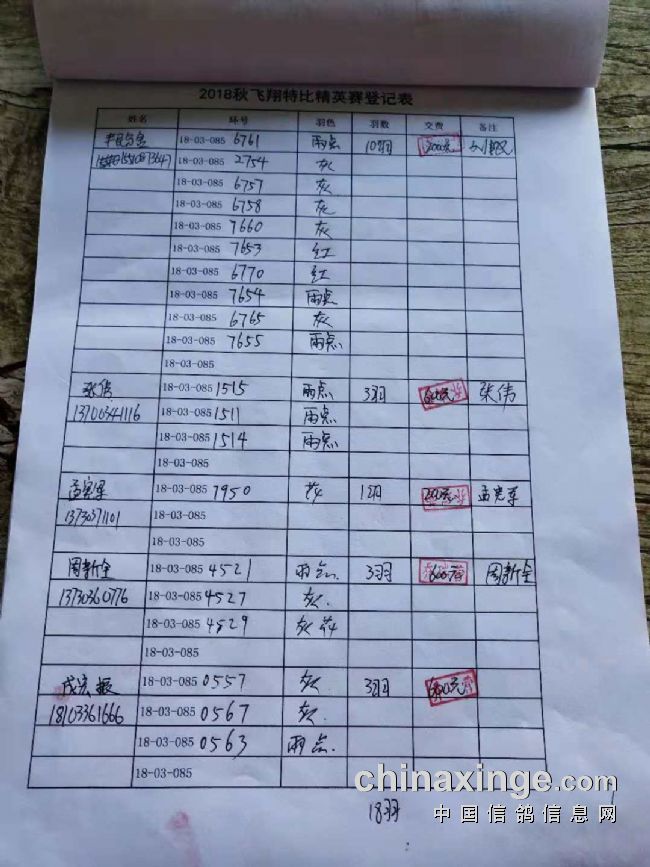 2018秋飞翔特比精英赛登记表
姓名 环号 羽色 羽数 交费 备注
18-03-085 6761 雨点 10羽
18-03-085 2754 灰
18-03-085 6757 灰
18-03-085 6758 灰
18-03-085 7660 灰
18-03-085 7653 红
18-03-085 6770 红
18-03-085 7654 雨点
18-03-085 6765 灰
18-03-085 7655 雨点
18-03-085
张伟 18-03-085 1515 雨点 3羽 600元 张伟
13700341116 18-03-085 1511 雨点
18-03-085 1514 雨点
18-03-085
18-03-085 7950 花 1羽 200元
13730371101 18-03-085
18-03-085
周新全 18-03-085 4521 雨点 3羽 600元 周新全
13730360776 18-03-085 4527 灰
18-03-085 4529 灰花
18-03-085
成宏振 18-03-085 0557 灰 3羽 600元
18103361666 18-03-085 0567 灰
18-03-085 0563 雨点
18-03-085
18羽
chinaxinge.com
中国信鸽信息网